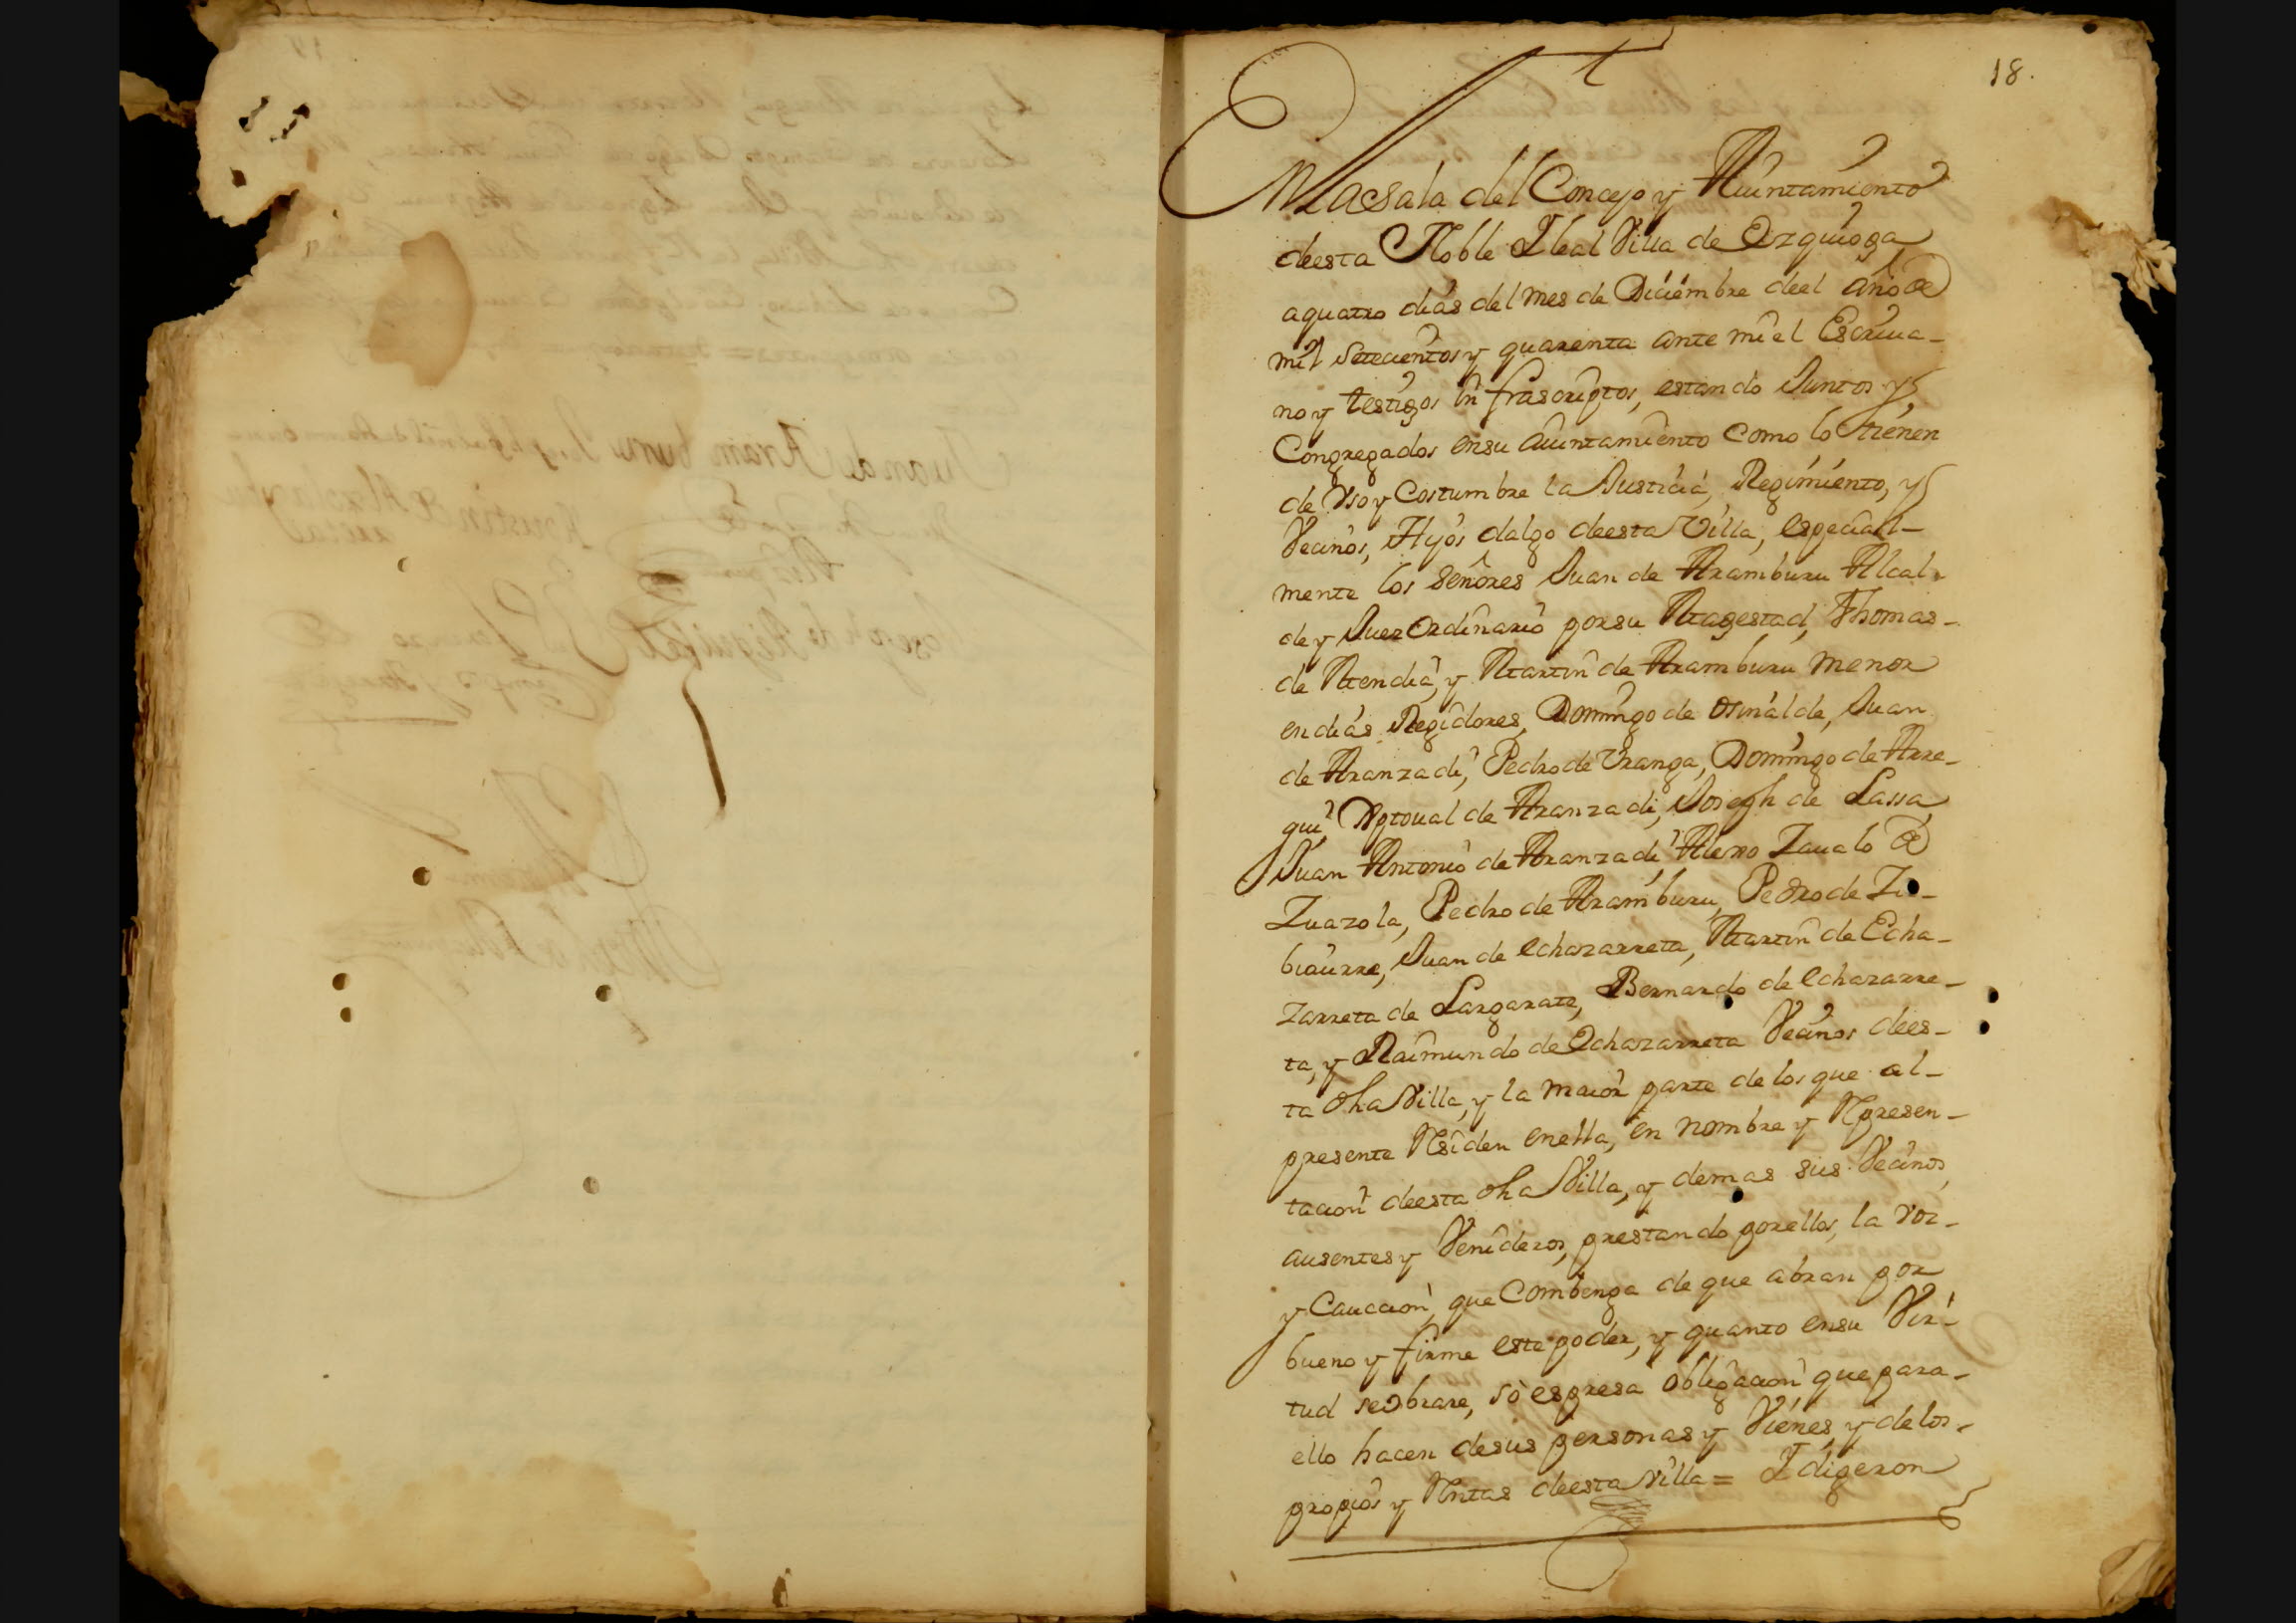 18.
En la Sala del Concejo y Aiuntamiento
deesta Noble I leal Villa de Ezquioga
a quatro dias del mes de Diciembre deel año de
mil Setecientos y quarenta ante mi el Escriua-
no y testigos infrascriptos, estando Juntos y
Congregados en su aiuntamiento como lo tienen
de Vso y Costumbre la Justicia, Regimiento, y
Vecinos, Hijos dalgo deesta Villa, especial-
mente los Señores Juan de Aramburu Alcal-
de y Juez Ordinario por su Magestad, Thomas-
de Mendia, y Martin de Aramburu menor
en dias Regidores, Domingo de Osinalde, Juan
de Aranzadi, Pedro de Vranga, Domingo de Arre-
gui, Xptoual de Aranzadi, Joseph de Lassa,
Juan Antonio de Aranzadi, Alexo Zaualo de
Zuazola, Pedro de Aramburu, Pedro de
biaurre, Juan de echazarreta, Martin de Echa-
zarreta de Largarate, Bernardo de echazarre-
ta, y Raimundo de Echazarreta Vecinos dees-
ta dha Villa, y la maior parte de los que al-
presente Rsiden en ella, en nombre y Rpresen-
tacion deesta dha Villa, y demas sus Vecinos,
ausentes y Venideros, prestando por ellos, la voz-
y Caucion, que Combenga de que abran por
bueno y firme este poder, y quanto en su Vir-
tud se obrare, so espresa obligacion que para-
ello hacen de sus personas y Vienes, y de los-
propios y Rntas deesta Villa = I digeron